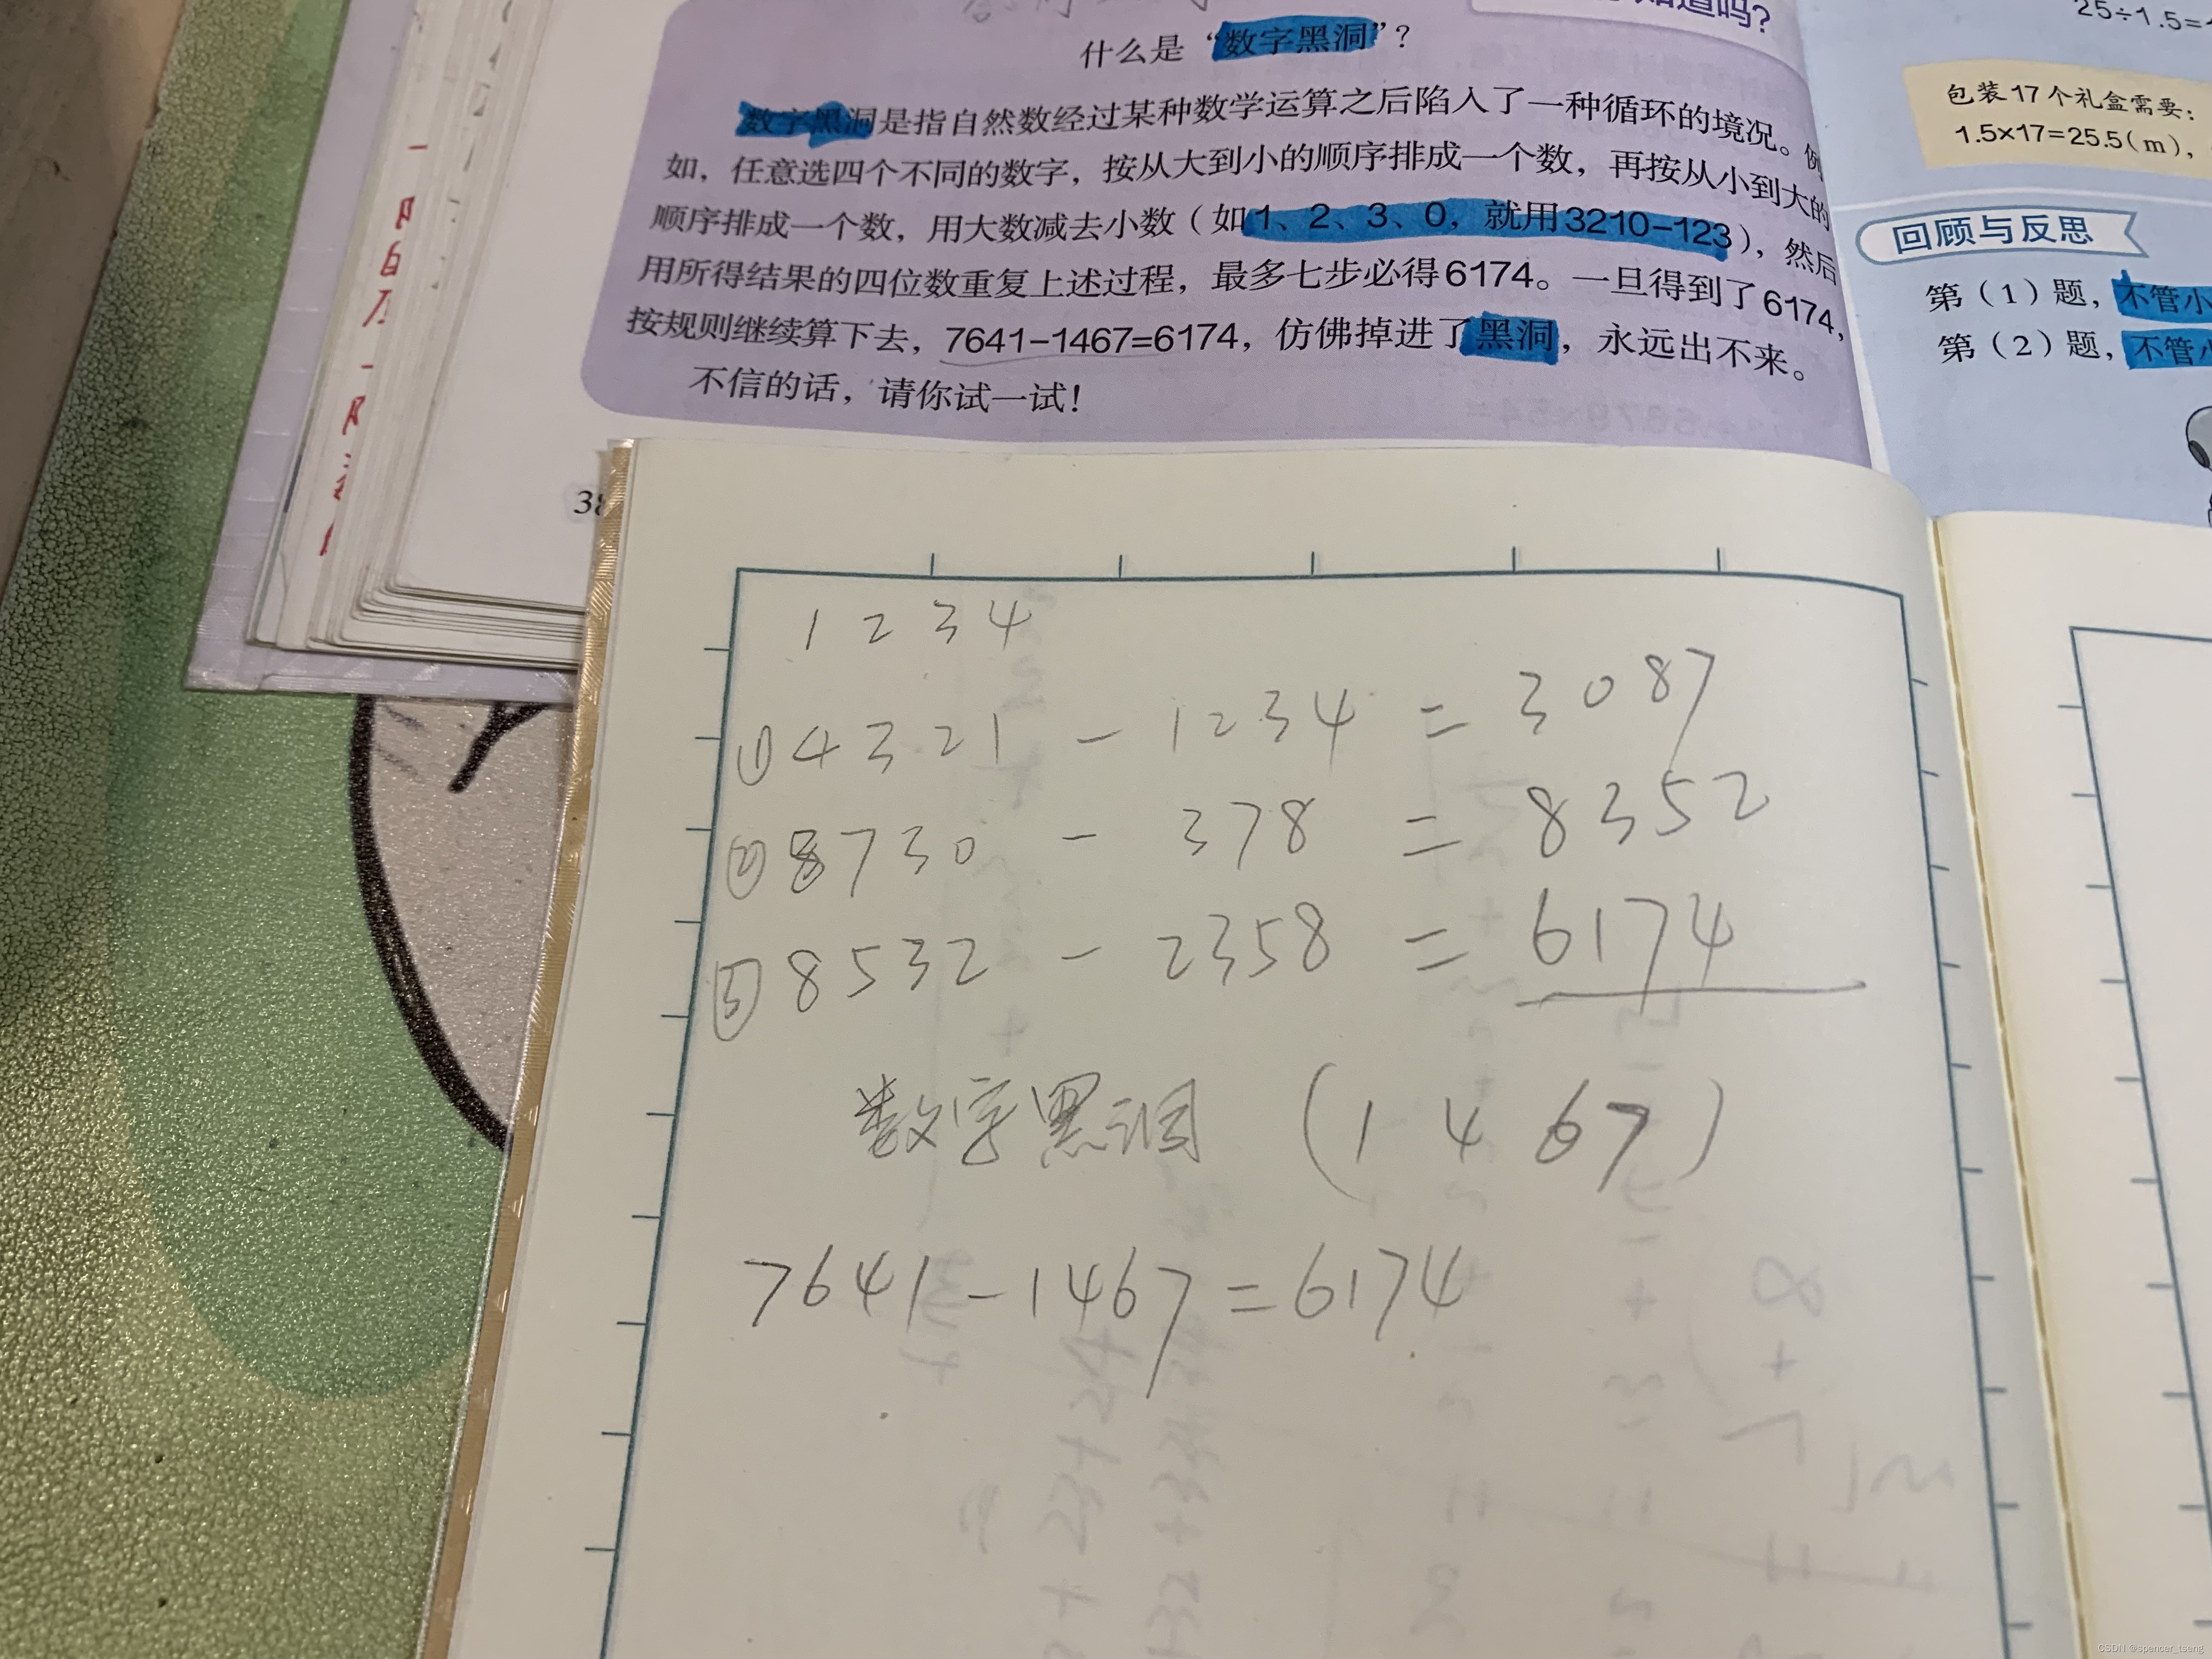 知道吗?
什么是“数字黑洞”?
数字黑洞是指自然数经过某种数学运算之后陷入了一种循环的境况。例
如，任意选四个不同的数字，按从大到小的顺序排成一个数，再按从小到大的
顺序排成一个数，用大数减去小数（如1、2、3、0，就用3210-123），然后
用所得结果的四位数重复上述过程，最多七步必得6174。一旦得到了6174，
按规则继续算下去，7641-1467=6174，仿佛掉进了黑洞，永远出不来。
不信的话，请你试一试!
38
25÷1.5=
包装17个礼盒需要:
1.5×17=25.5(m),
回顾与反思
第（1）题，不管小
第（2）题，不管小
1 2 3 4
① 4321 - 1234 = 3087
② 8730 - 378 = 8352
③ 8532 - 2358 = 6174
数字黑洞 (1 4 6 7)
7641-1467=6174
CSDN @spencer_tseng